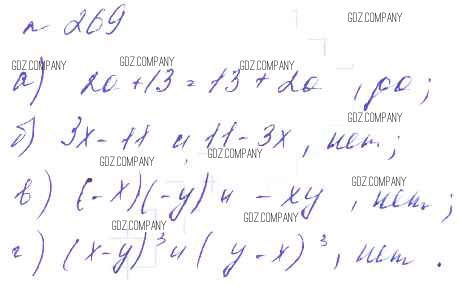 № 269
GDZ.COMPANY
GDZ.COMPANY GDZ.COMPANY GDZ.COMPANY
а) 2a + 13 = 13 + 2a, да;
GDZ.COMPANY
б) 3x - 11 и 11 - 3x, нет;
GDZ.COMPANY GDZ.COMPANY
GDZ.COMPANY
в) (-x)(-y) и -xy, нет;
GDZ.COMPANY GDZ.COMPANY
г) (x-y)³ и (y-x)³, нет.